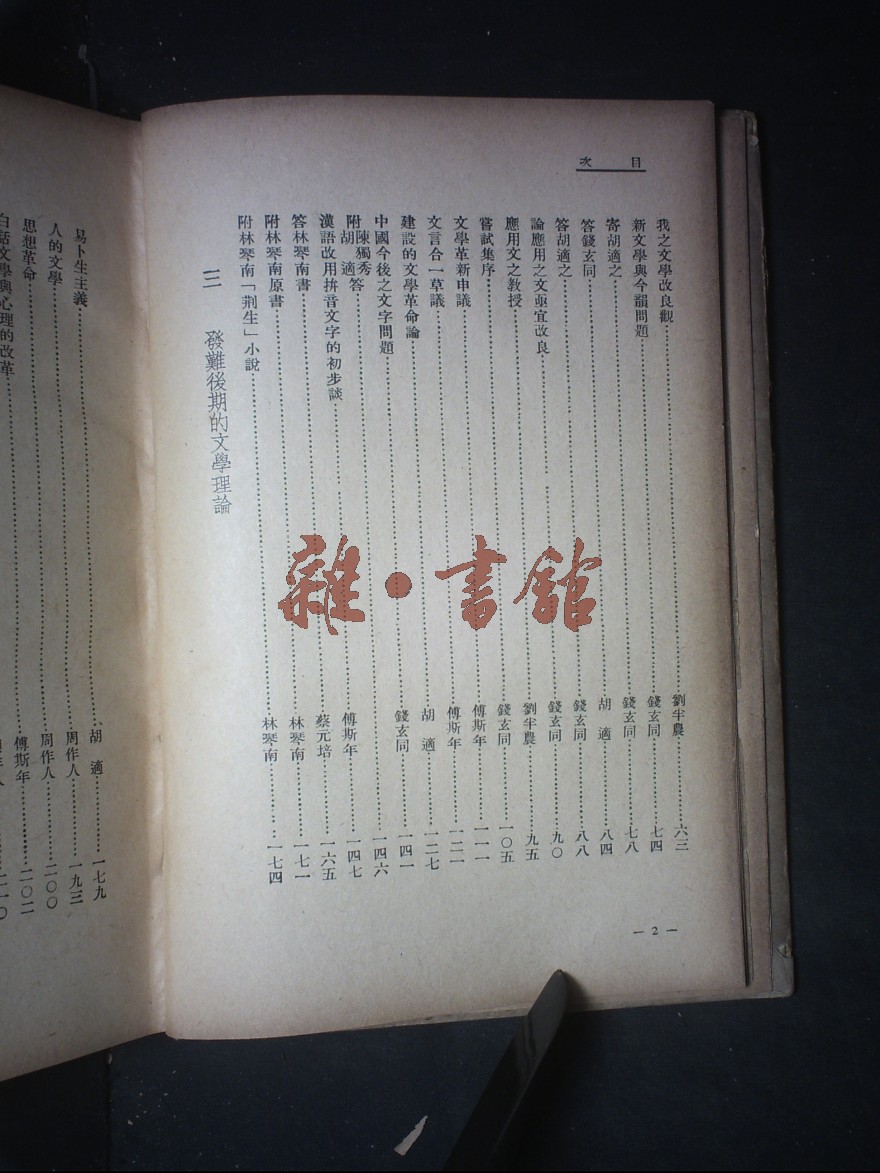 目 次
我之文學改良觀……劉半農……六三
新文學與今韻問題……錢玄同……七四
寄胡適之……錢玄同……七八
答錢玄同……胡 適……八四
答胡適之……錢玄同……八八
論應用之文亟宜改良……錢玄同……九〇
應用文之教授……劉半農……九五
嘗試集序……錢玄同……一〇五
文學革新申議……傅斯年……一一一
文言合一草議……傅斯年……一二一
建設的文學革命論……胡 適……一二七
中國今後之文字問題……錢玄同……一四一
附陳獨秀胡適答……一四六
漢語改用拚音文字的初步談……傅斯年……一四七
答林琴南書……蔡元培……一六五
附林琴南原書……林琴南……一七一
附林琴南「荆生」小說……林琴南……一七四
三 發難後期的文學理論
— 2 —
易卜生主義……胡 適……一七九
人的文學……周作人……一九三
思想革命……周作人……二〇〇
白話文學與心理的改革……傅斯年……二〇二
二一〇
雜·書館